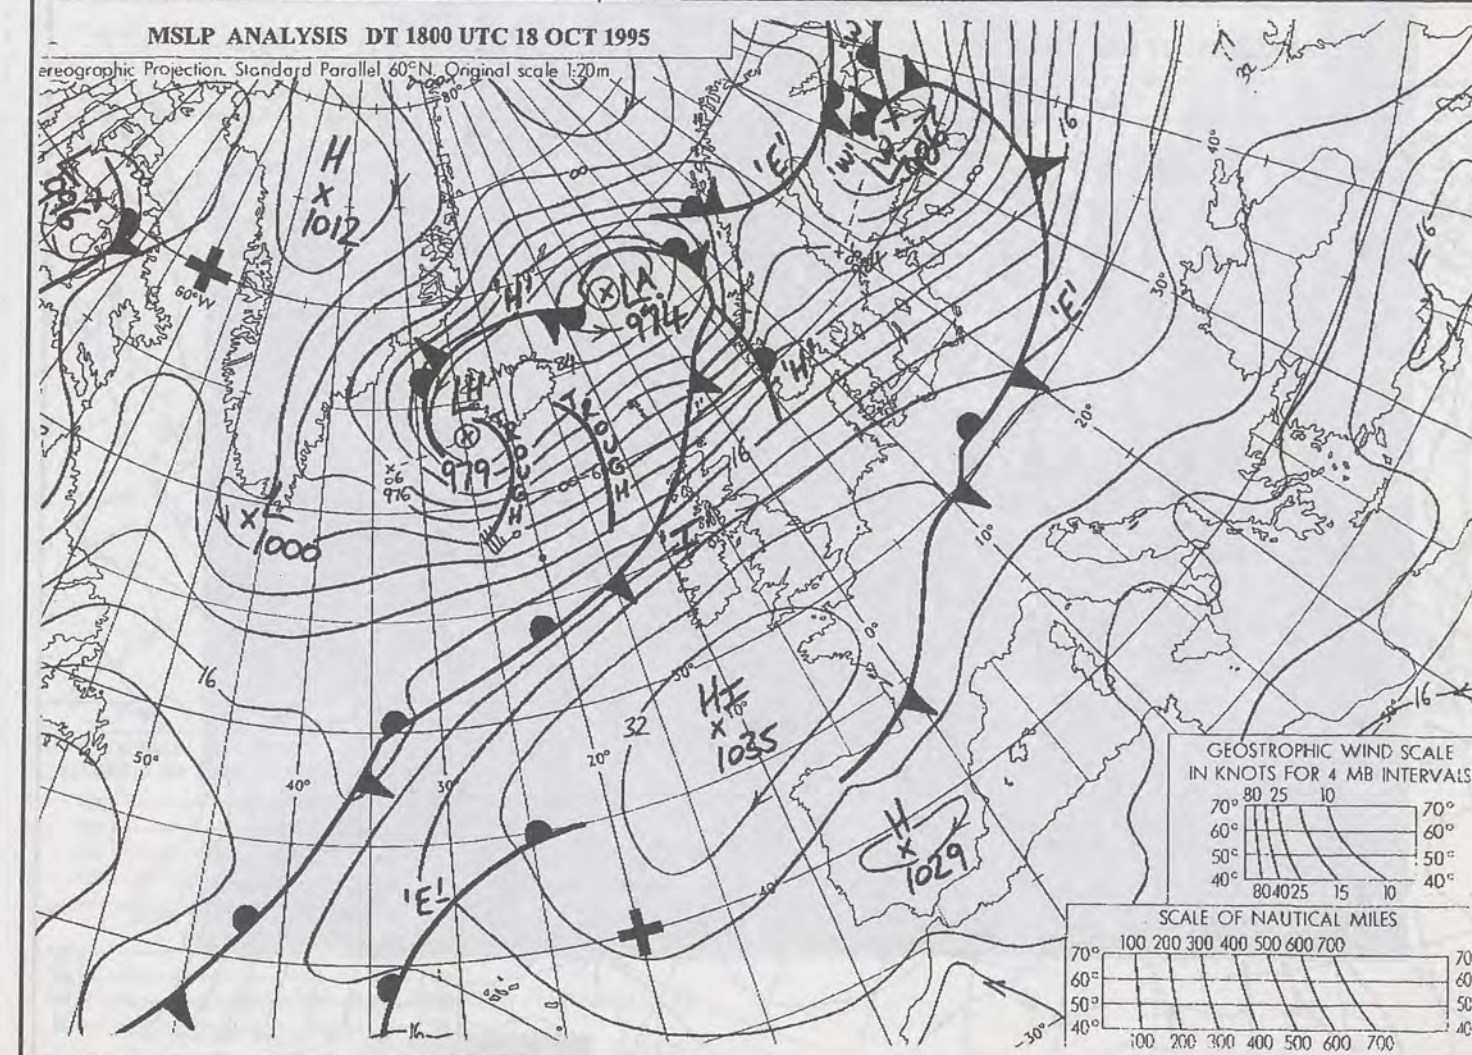 MSLP ANALYSIS DT 1800 UTC 18 OCT 1995
ereographic Projection. Standard Parallel 60°N. Original scale 1:20m
80°
H
1012
'E'
'W'
16
40°
60°W
'H'
LA
974
84
'E'
30°
16
LH
979
TROUGH
TROUGH
'H'
06
976
20°
16
1000
'I'
10°
0°
16
50°
HI
10°
1035
32
50°
40°
30°
20°
H
1029
40°
'E'
16
16
30°
GEOSTROPHIC WIND SCALE
IN KNOTS FOR 4 MB INTERVALS
80 25 10
70° 70°
60° 60°
50° 50°
40° 40°
80 40 25 15 10
SCALE OF NAUTICAL MILES
100 200 300 400 500 600 700
70° 70
60° 60
50° 50
40° 40
100 200 300 400 500 600 700